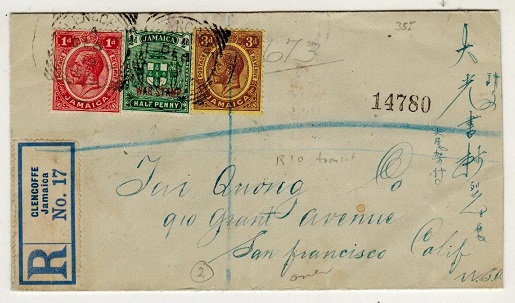 GLENCOFFE
1d 1d
POSTAGE & REVENUE
JAMAICA
JAMAICA
WAR STAMP.
HALF PENNY
3d 3d
POSTAGE & REVENUE
JAMAICA
673
355
14780
大光書林
R
GLENCOFFE
Jamaica
No. 17
R10 transit
Tai Quong Co
910 Grant Avenue
San francisco Calif
U.S.A
2
over